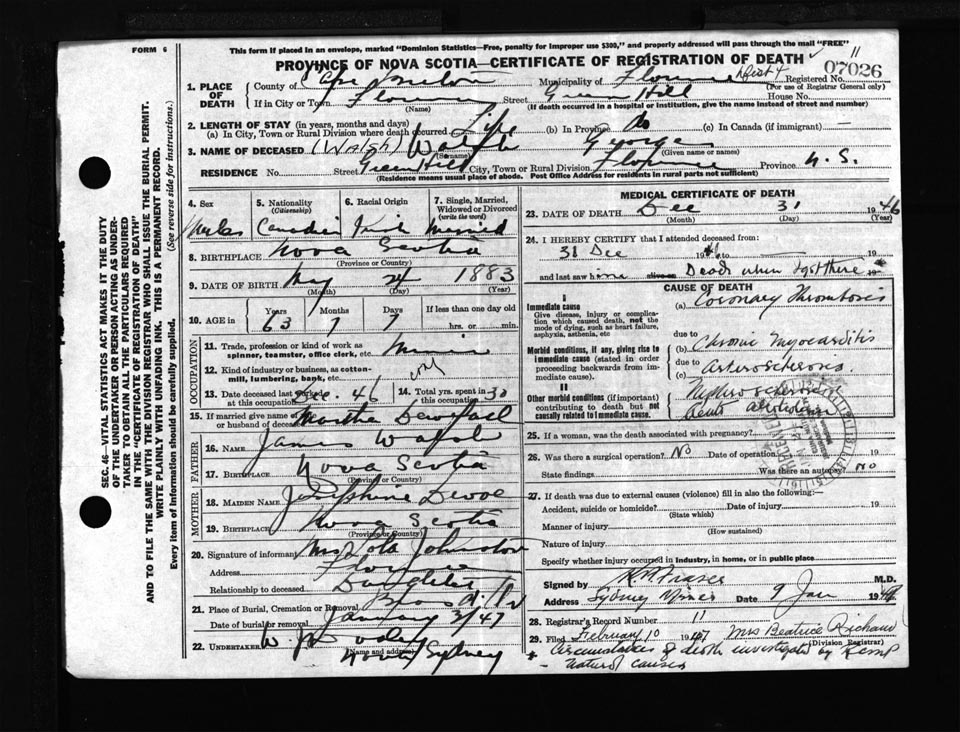 FORM 6
This form if placed in an envelope, marked "Dominion Statistics—Free, penalty for improper use $300," and properly addressed will pass through the mail "FREE"
PROVINCE OF NOVA SCOTIA—CERTIFICATE OF REGISTRATION OF DEATH
11
07026
1. PLACE OF DEATH
County of Cape Breton
Municipality of Florence Dist 4
Registered No.
(For use of Registrar General only)
If in City or Town Florence
(Name)
Street Green Hill
House No.
(If death occurred in a hospital or institution, give the name instead of street and number)
2. LENGTH OF STAY (in years, months and days)
(a) In City, Town or Rural Division where death occurred Life
(b) In Province do
(c) In Canada (if immigrant) —
3. NAME OF DECEASED (Walsh) Walsh George
(Surname)
(Given name or names)
RESIDENCE No. Street Green Hill City, Town or Rural Division Florence Province N. S.
(Residence means usual place of abode. Post Office Address for residents in rural parts not sufficient)
4. Sex
Male
5. Nationality
(Citizenship)
Canadian
6. Racial Origin
Irish
7. Single, Married, Widowed or Divorced
(write the word)
Married
8. BIRTHPLACE Nova Scotia
(Province or Country)
9. DATE OF BIRTH May 24 1883
(Month) (Day) (Year)
10. AGE in
Years Months Days If less than one day old
63 7 7 hrs. or min.
OCCUPATION
11. Trade, profession or kind of work as spinner, teamster, office clerk, etc. Miner
12. Kind of industry or business, as cotton-mill, lumbering, bank, etc. coal
13. Date deceased last worked at this occupation Dec. 46
14. Total yrs. spent in this occupation 30
15. If married give name of wife or husband of deceased Martha
FATHER
16. NAME James Walsh
17. BIRTHPLACE Nova Scotia
(Province or Country)
MOTHER
18. MAIDEN NAME Josephine Devoe
19. BIRTHPLACE Nova Scotia
(Province or Country)
20. Signature of informant Mrs Lola Johnston
Address Florence
Relationship to deceased Daughter
21. Place of Burial, Cremation or Removal
Date of burial or removal January 2/47
22. UNDERTAKER W. J. Dooley
North Sydney
(Name and address)
MEDICAL CERTIFICATE OF DEATH
23. DATE OF DEATH Dec 31 1946
(Month) (Day) (Year)
24. I HEREBY CERTIFY that I attended deceased from:
31 Dec 1946 to 19
and last saw him alive Dead when I got there 19
CAUSE OF DEATH
I
Immediate cause
Give disease, injury or complication which caused death, not the mode of dying, such as heart failure, asphyxia, asthenia, etc
(a) Coronary Thrombosis
due to
Morbid conditions, if any, giving rise to immediate cause (stated in order proceeding backwards from immediate cause).
(b) Chronic Myocarditis
due to
(c) Arteriosclerosis
II
Other morbid conditions (if important) contributing to death but not causally related to immediate cause.
25. If a woman, was the death associated with pregnancy?
26. Was there a surgical operation? NO Date of operation 19
State findings Was there an autopsy NO
27. If death was due to external causes (violence) fill in also the following:—
Accident, suicide or homicide? Date of injury 19
(State which)
Manner of injury
(How sustained)
Nature of injury
Specify whether injury occurred in industry, in home, or in public place
Signed by Fraser M.D.
Address Sydney Mines Date 9 Jan 1947
28. Registrar's Record Number 11
29. Filed February 10 1947 Mrs Beatrice
(Division Registrar)
* Circumstances of death investigated by
- Natural causes
SEC. 46—VITAL STATISTICS ACT MAKES IT THE DUTY
OF THE UNDERTAKER OR PERSON ACTING AS UNDERTAKER TO OBTAIN ALL THE PARTICULARS REQUIRED
IN THE "CERTIFICATE OF REGISTRATION OF DEATH"
AND TO FILE THE SAME WITH THE DIVISION REGISTRAR WHO SHALL ISSUE THE BURIAL PERMIT.
WRITE PLAINLY WITH UNFADING INK. THIS IS A PERMANENT RECORD.
Every item of Information should be carefully supplied. (See reverse side for instructions.)